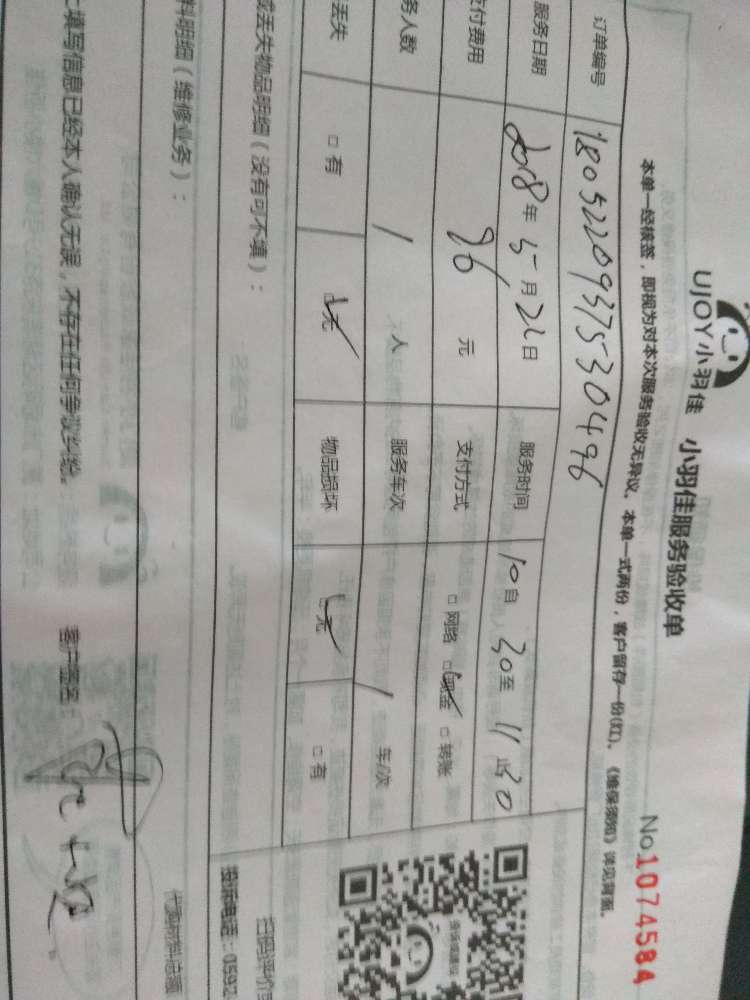 UJOY小羽佳 小羽佳服务验收单 No.1074584
本单一经核签，即视为对本次服务验收无异议。本单一式两份，客户留存一份(红)。《维保须知》详见背面。
订单编号 180522093753 0496
服务日期 2018年5月22日 服务时间 10自30至11点30
支付费用 86元 支付方式 □网络 □现金 □转账
务人数 1人 服务车次 1车/次
丢失 □有 □无 物品损坏 □无 □有
或丢失物品明细（没有可不填）：
扫码评价
投诉电话：0592
料明细（维修业务）：
代购材料总额
上填写信息已经本人确认无误，不存在任何争议纠纷。 客户签名：